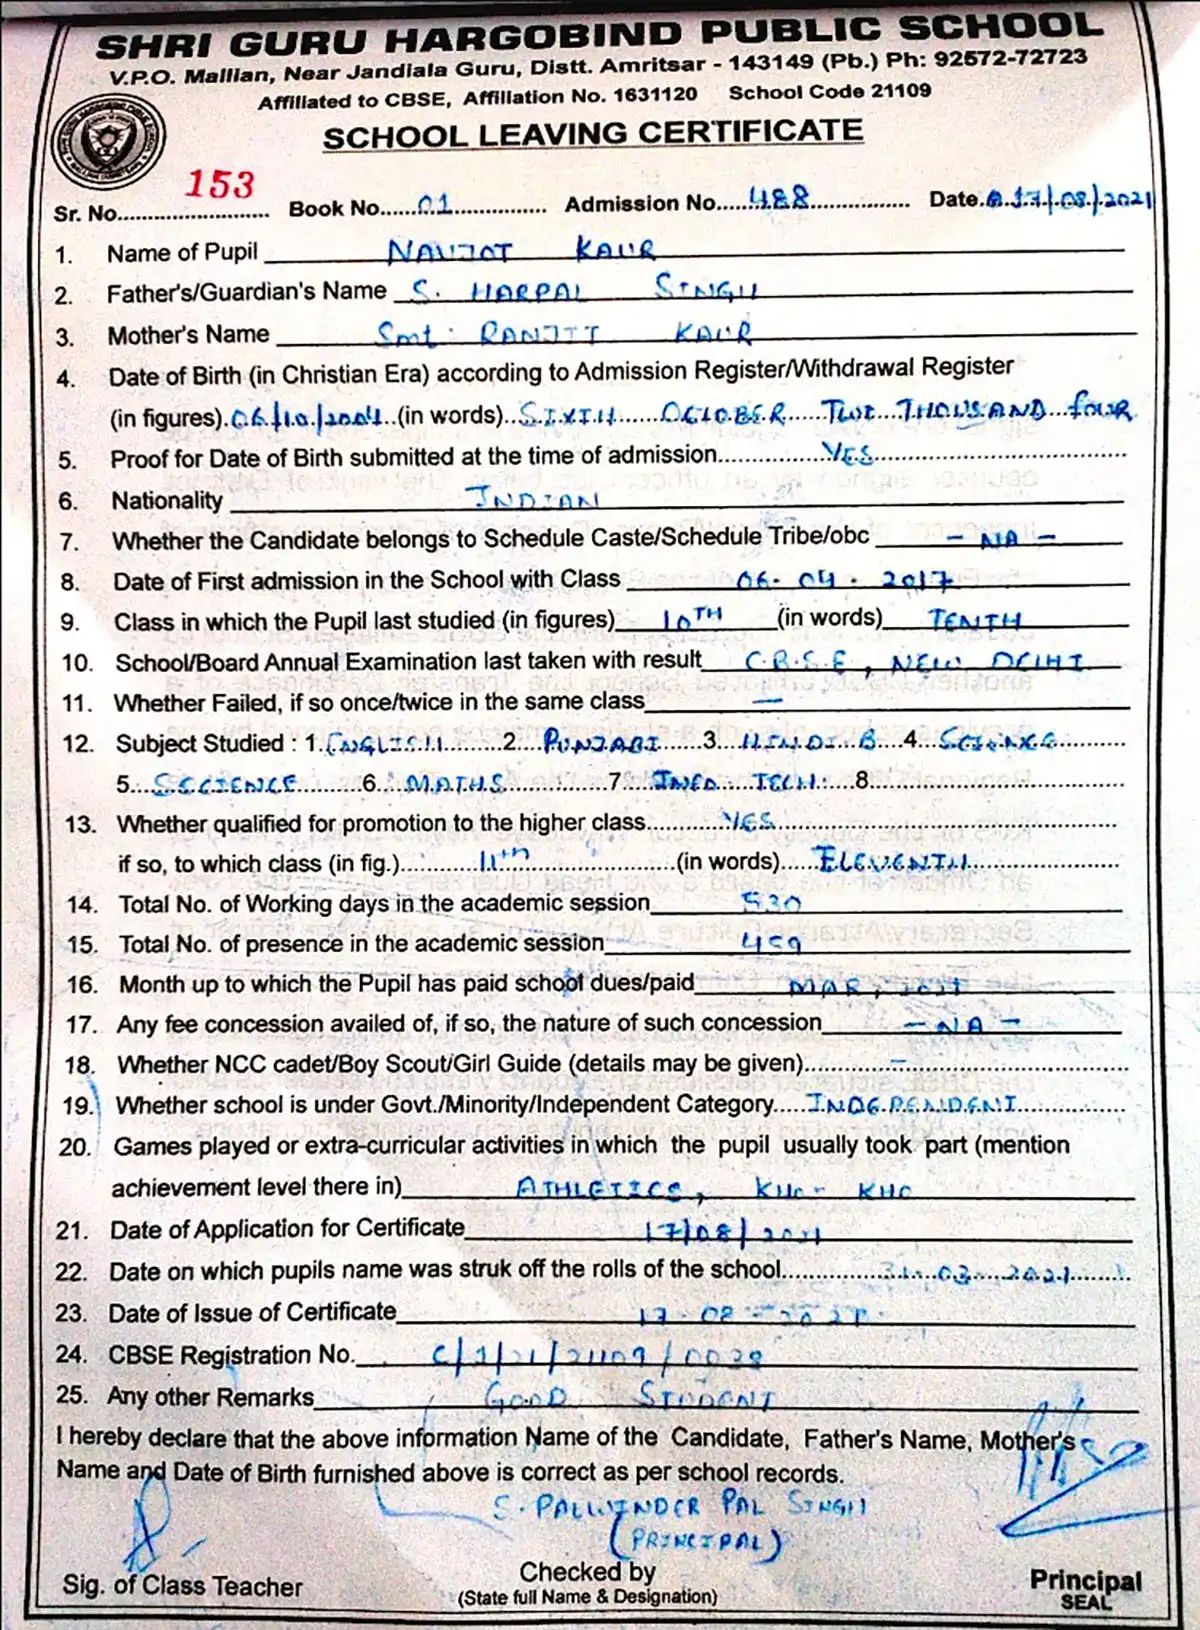 SHRI GURU HARGOBIND PUBLIC SCHOOL
V.P.O. Mallian, Near Jandiala Guru, Distt. Amritsar - 143149 (Pb.) Ph: 92572-72723
Affiliated to CBSE, Affiliation No. 1631120 School Code 21109
SCHOOL LEAVING CERTIFICATE
Sr. No. 153 Book No. 01 Admission No. 488 Date. 17/08/2021
1. Name of Pupil NAVJOT KAUR
2. Father's/Guardian's Name S. HARPAL SINGH
3. Mother's Name Smt. RANJIT KAUR
4. Date of Birth (in Christian Era) according to Admission Register/Withdrawal Register
(in figures). 06/10/2004 (in words) SIXTH OCTOBER TWO THOUSAND FOUR
5. Proof for Date of Birth submitted at the time of admission YES
6. Nationality INDIAN
7. Whether the Candidate belongs to Schedule Caste/Schedule Tribe/obc - NA -
8. Date of First admission in the School with Class 06-04-2017
9. Class in which the Pupil last studied (in figures) 10TH (in words) TENTH
10. School/Board Annual Examination last taken with result C.B.S.E, NEW DELHI
11. Whether Failed, if so once/twice in the same class —
12. Subject Studied : 1. ENGLISH 2. PUNJABI 3. HINDI B 4. SCIENCE
5. S.SCIENCE 6. MATHS 7. TECH. 8.
13. Whether qualified for promotion to the higher class YES
if so, to which class (in fig.) 11th (in words) ELEVENTH
14. Total No. of Working days in the academic session 530
15. Total No. of presence in the academic session 459
16. Month up to which the Pupil has paid school dues/paid MAR, 2021
17. Any fee concession availed of, if so, the nature of such concession - NA -
18. Whether NCC cadet/Boy Scout/Girl Guide (details may be given) —
19. Whether school is under Govt./Minority/Independent Category INDEPENDENT
20. Games played or extra-curricular activities in which the pupil usually took part (mention
achievement level there in) ATHLETICS, KHO-KHO
21. Date of Application for Certificate 17/08/2021
22. Date on which pupils name was struk off the rolls of the school 31-03-2021
23. Date of Issue of Certificate 17-08-2021
24. CBSE Registration No. C/1/21/21109/0028
25. Any other Remarks GOOD STUDENT
I hereby declare that the above information Name of the Candidate, Father's Name, Mother's
Name and Date of Birth furnished above is correct as per school records.
S. PALWINDER PAL SINGH
(PRINCIPAL)
Sig. of Class Teacher Checked by Principal
(State full Name & Designation) SEAL